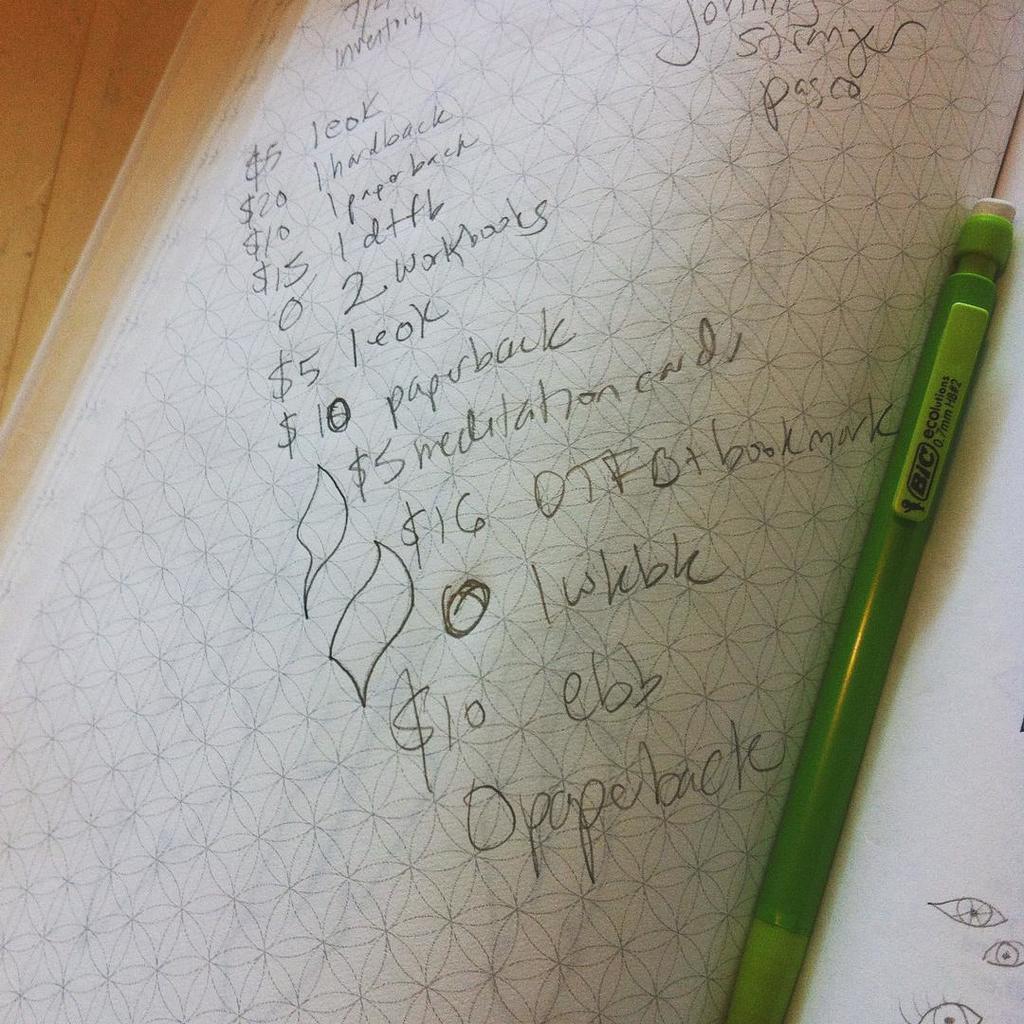 inventory
stranger
pasco
$5 1 eok
$20 1 hardback
$10 1 paperback
$15 1 dtfb
0 2 workbooks
$5 1 eok
$10 paperback
$5 meditation cards
$16 DTFB + bookmark
0 1 wkbk
$10 ebb
0 paperback
BIC ecolutions
0.7mm HB#2